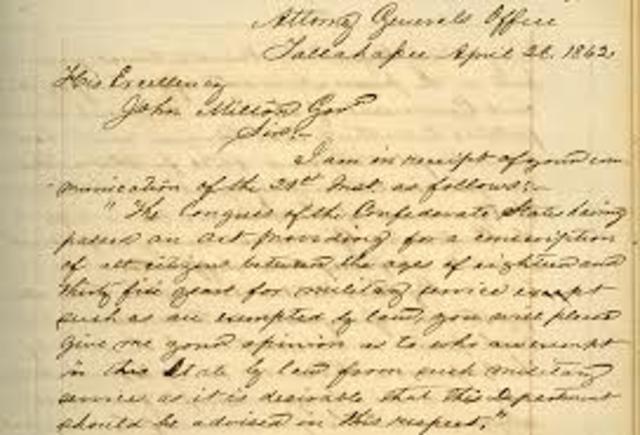 Attorney Generals Office
Tallahassee April 26. 1862
His Excellency
John Milton Govr
Sir:-
I am in receipt of your com
munication of the 21st Inst. as follows:-
" The Congress of the Confederate States having
passed an act providing for a conscription
of all citizens between the ages of eighteen and
thirty five years for military service except
such as are exempted by law, you will please
give me your opinion as to who are exempt
in this State by law from such military
service as it is desirable that this Department
should be advised in this respect."